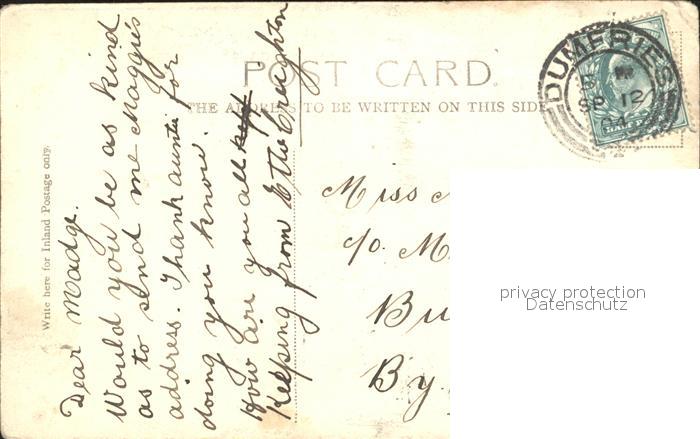 POST CARD.
THE ADDRESS TO BE WRITTEN ON THIS SIDE
Write here for Inland Postage only.
Dear Madge.
Would you be as kind
as to send me Maggie's
address. Thank auntie for
doing you know.
How are you all
Keeping from E the Creighton
DUMFRIES
SP 12
04
HALF P
Miss
c/o. M
Bu
By
privacy protection
Datenschutz